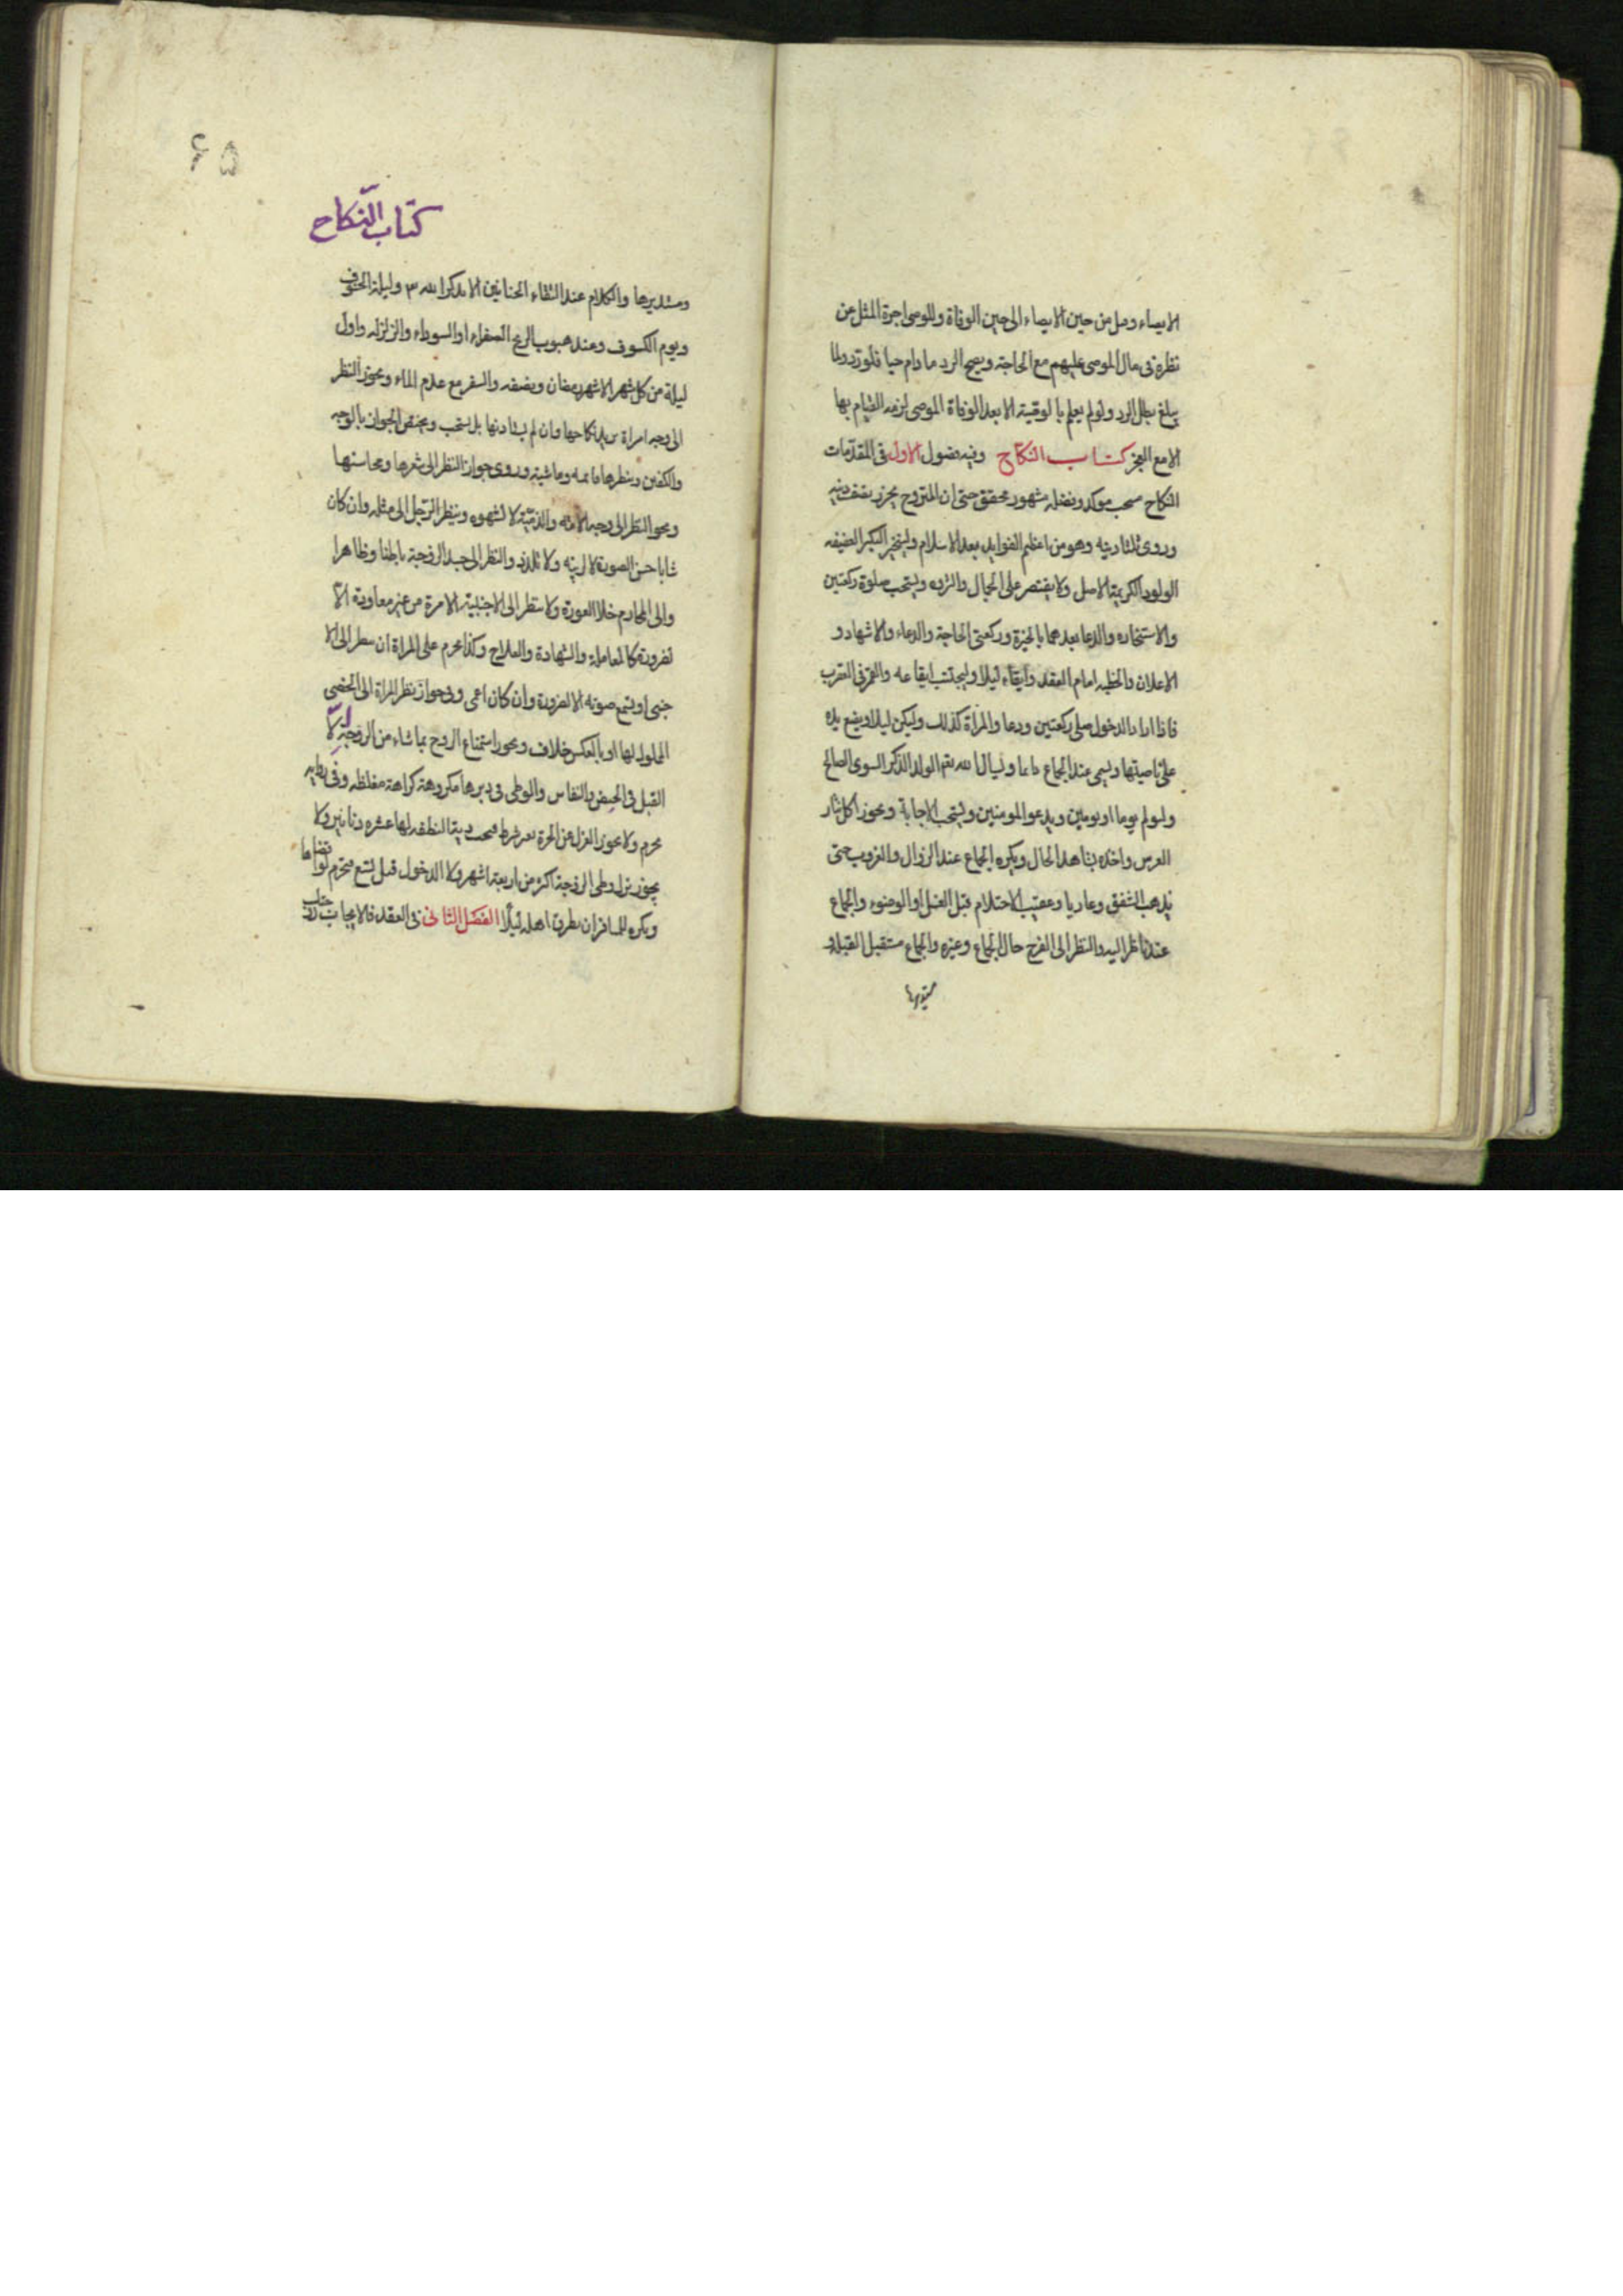 الايصاء وصل من حين الايصاء الى حين الوفاة وللوصى اجرة المثل عن
نظره فى مال الموصى عليهم مع الحاجة ويصح الرد ما دام حيا فلو رد ولما
يبلغ بطل الرد ولو لم يعلم بالوصية الا بعد الوفاة الموصى لزمه القيام بها
الا مع العجز كتاب النكاح وفيه فصول الاول فى المقدمات
النكاح مستحب موكد وفضله مشهور محقق حتى ان المتزوج يحرز نصف دينه
وروى ثلثا دينه وهو من اعظم الفوايد بعد الاسلام وليتخير البكر العفيفه
الولود الكريمة الاصل ولا يقتصر على الجمال والثروه ويستحب صلوة ركعتين
والاستخاره والدعا بعدهما بالخيرة وركعتى الحاجة والدعاء والاشهاد و
الاعلان والخطبه امام العقد وايقاعه ليلا وليجتنب ايقاعه والقمر فى العقرب
فاذا اراد الدخول صلى ركعتين ودعا والمراة كذلك وليكن ليلا ويضع يده
على ناصيتها ويسمى عند الجماع دايما ويسال الله تعم الولد الذكر السوى الصالح
وليولم يوما او يومين ويدعو المومنين ويستحب الاجابة ويجوز اكل نثار
العرس واخذه بشاهد الحال ويكره الجماع عند الزوال والغروب حتى
يذهب الشفق وعاريا وعقيب الاحتلام قبل الغسل او الوضوء والجماع
عند ناظر اليه والنظر الى الفرج حال الجماع وغيره والجماع مستقبل القبله و
مستدبرها
۶۵
كتاب النّكاح
ومستدبرها والكلام عند التقاء الختانين الا بذكر الله وليلة الخسوف
ويوم الكسوف وعند هبوب الريح الصفراء او السوداء والزلزله واول
ليلة من كل شهر الا شهر رمضان ونصفه والسفر مع عدم الماء ويجوز النظر
الى وجه امراة يريد نكاحها وان لم يستاذنها بل يستحب ويختص الجواز بالوجه
والكفين وينظرها قايمه وماشيه وروى جواز النظر الى شعرها ومحاسنها
ويجوز النظر الى وجه الامه والذمّيّة لا لشهوه وينظر الرّجل الى مثله وان كان
شابا حسن الصورة لا لريبه ولا تلذذ والنظر الى جسد الزوجة باطنا وظاهرا
والى المحارم خلا العورة ولا ينظر الى الاجنبية الا مرة من غير معاودة الا
لضرورة كالمعاملة والشهادة والعلاج وكذا يحرم على المراة ان تنظر الى الا
جنبى او يسمع صوته الا لضرورة وان كان اعمى وفى جواز نظر المراة الى الخصى
المملوك لها او بالعكس خلاف ويجوز استمتاع الزوج بما شاء من الزوجة الّا
القبل فى الحيض والنفاس والوطى فى دبرها مكروهة كراهة مغلظه وفى روايه
يحرم ولا يجوز العزل عن الحرة بغير شرط فيجب دية النطفه لها عشره دنانير ولا
يجوز ترك وطى الزوجة اكثر من اربعة اشهر ولا الدخول قبل تسع فتحرم لو افضاها
ويكره للمسافر ان يطرق اهله ليلًا الفصل الثانى فى العقد فالايجاب